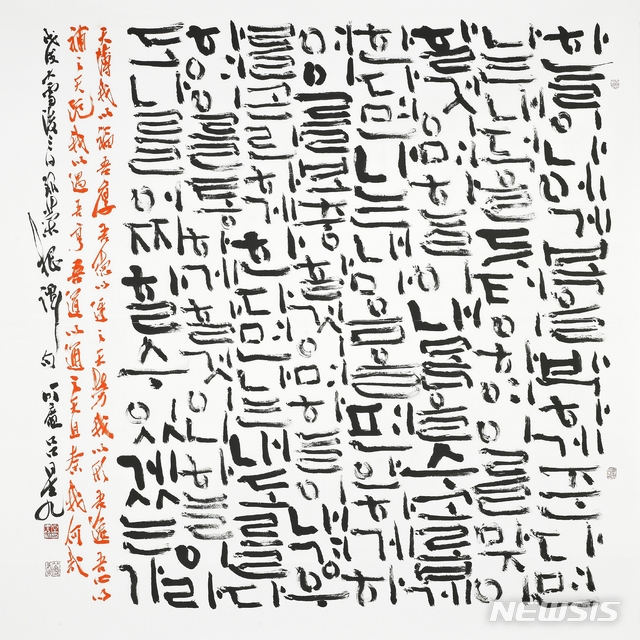 하늘이 내게 복을 박하게 준다면
나는 내 덕을 두텁게 하여 이를 맞이
할 것이며 하늘이 내 몸을 수고롭게
한다면 나는 내 마음을 편하게 하
여 이를 보충할 것이며 하늘이 내 경우
를 하게 한다면 나는 내 도를 다
하여 이를 통하게 할 것이니 하늘이라
도 나를 어찌 할 수 있겠는가
天薄我以福吾厚吾德以迓之天勞我以形吾逸吾心以
補之天阨我以遇吾亨吾道以通之天且奈我何哉
大雪後三日錄菜根譚句 呂星九
NEWSIS